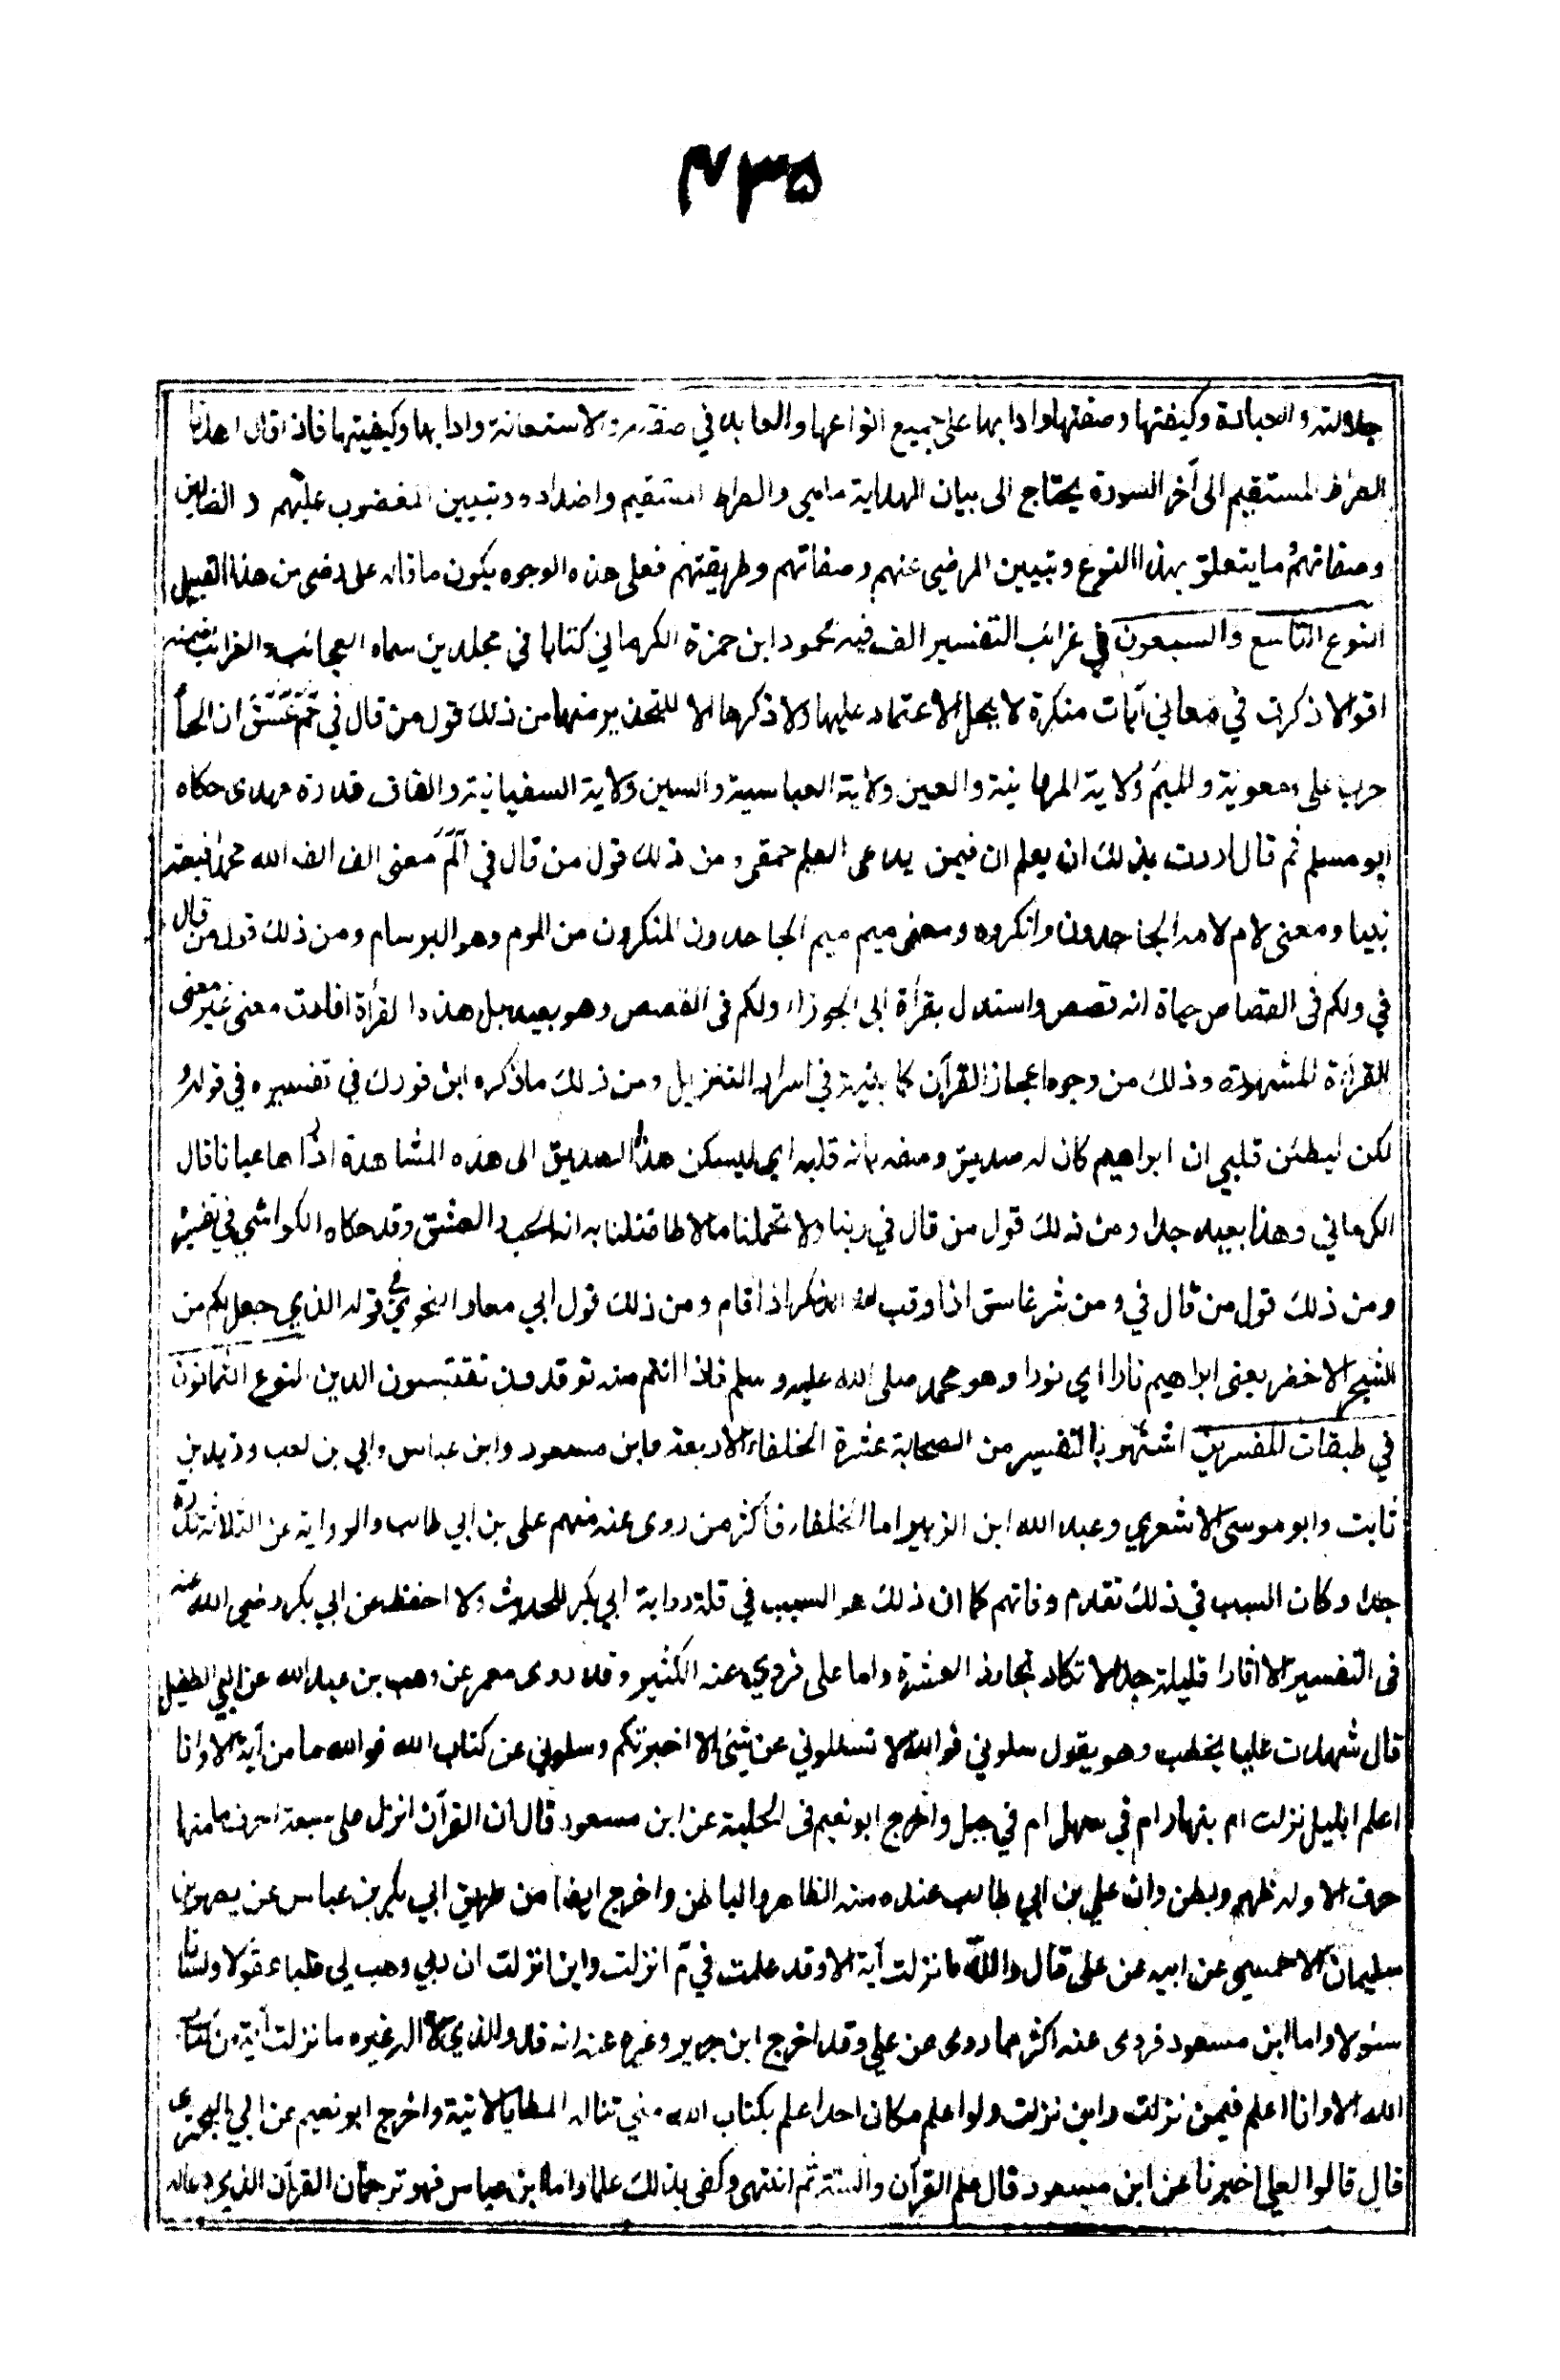 ٤٣٥
جلالته والعبادة وكيفتها وصفتها وادابها على جميع انواعها والعابد في صفته والاستعانة وادابها وكيفيتها فاذا قال اهدنا
الصراط المستقيم الى آخر السورة يحتاج الى بيان الهداية ماهي والصراط المستقيم واضداده وتبيين المغضوب عليهم و الضالين
وصفاتهم وما يتعلق بهذا النوع وتبيين المرضي عنهم وصفاتهم وطريقتهم فعلى هذه الوجوه يكون ما قاله على رضى من هذا القبيل
النوع التاسع والسبعون في غرائب التفسير الف فيه محمود ابن حمزة الكرماني كتابا في مجلدين سماه العجائب والغرائب ضمنه
اقوالا ذكرت في معاني آيات منكرة لا يحل الاعتماد عليها ولا ذكرها الا للتحذير منها من ذلك قول من قال في حمعسق ان الحا
حرب على ومعوية والميم ولاية المروانية والعين ولاية العباسية والسين ولاية السفيانية والقاف قدرة مهدى حكاه
ابو مسلم ثم قال اردت بذلك ان يعلم ان فيمن يدعى العلم حمقى ومن ذلك قول من قال في آلم معنى الف الف الله محمدا فبعثه
نبينا ومعنى لام لامه الجاحدون وانكروه ومعنى ميم ميم الجاحدون المنكرون من الموم وهو البرسام ومن ذلك قول من قال
في ولكم فى القصاص حياة انه قصص واستدل بقرأة ابى الجوزاء ولكم فى القصص وهو بعيد بل هذه القرأة افادت معنى غير معنى
القرأة المشهورة وذلك من وجوه اعجاز القرآن كما بينته في اسرار التنزيل ومن ذلك ما ذكره ابن فورك في تفسيره في قوله و
لكن ليطئن قلبي ان ابراهيم كان له صديق وصفه بانه قلبه اي ليسكن هذا الصديق الى هذه المشاهدة اذا راها عيانا قال
الكرماني وهذا بعيد جدا ومن ذلك قول من قال في ربنا ولا تحملنا مالا طاقة لنا به انه الحب والعشق وقد حكاه الكواشي في تفسيره
ومن ذلك قول من قال في ومن شر غاسق اذا وقب انه الذكر اذا قام ومن ذلك قول ابي معاذ النحوي في قوله الذي جعل لكم من
الشجر الاخضر يعنى ابراهيم نارا اي نورا وهو محمد صلى الله عليه وسلم فاذا انتم منه توقدون تقتبسون الدين النوع الثمانون
في طبقات المفسرين اشتهر بالتفسير من الصحابة عشرة الخلفاء الاربعة وابن مسعود وابن عباس وابي بن كعب وزيد بن
ثابت وابو موسى الاشعري وعبد الله ابن الزبير اما الخلفاء فأكثر من روى عنه منهم على بن ابي طالب والرواية عن الثلاثة نزرة
جدا وكان السبب في ذلك تقدم وفاتهم كما ان ذلك هو السبب في قلة رواية ابي بكر للحديث ولا احفظ عن ابي بكر رضى الله عنه
فى التفسير الا اثارا قليلة جدا لا تكاد تجاوز العشرة واما على فروي عنه الكثير وقد روى معمر عن وهب بن عبد الله عن ابي الطفيل
قال شهدت عليا يخطب وهو يقول سلوني فوالله لا تسئلوني عن شئ الا اخبرتكم وسلوني عن كتاب الله فوالله ما من آية الا وانا
اعلم ابليل نزلت ام بنهار ام في سهل ام في جبل واخرج ابو نعيم فى الحلية عن ابن مسعود قال ان القرآن انزل على سبعة احرف ما منها
حرف الا وله ظهر وبطن وان علي بن ابي طالب عنده منه الظاهر والباطن واخرج ايضا من طريق ابي بكر بن عياش عن نصير بن
سليمان الاحمسي عن ابيه عن على قال والله ما نزلت آية الا وقد علمت فيم انزلت واين انزلت ان ربي وهب لي قلبا عقولا ولسانا
سئولا واما ابن مسعود فروى عنه اكثر مما روى عن علي وقد اخرج ابن جرير وغيره عنه انه قال والذي لا اله غيره ما نزلت آية من كتاب
الله الا وانا اعلم فيمن نزلت واين نزلت ولو اعلم مكان احد اعلم بكتاب الله مني تناله المطايا لاتيته واخرج ابو نعيم عن ابي البحترى
قال قالوا لعلي اخبرنا عن ابن مسعود قال علم القرآن والسنة ثم انتهى وكفى بذلك علما واما ابن عباس فهو ترجمان القرآن الذي دعا له